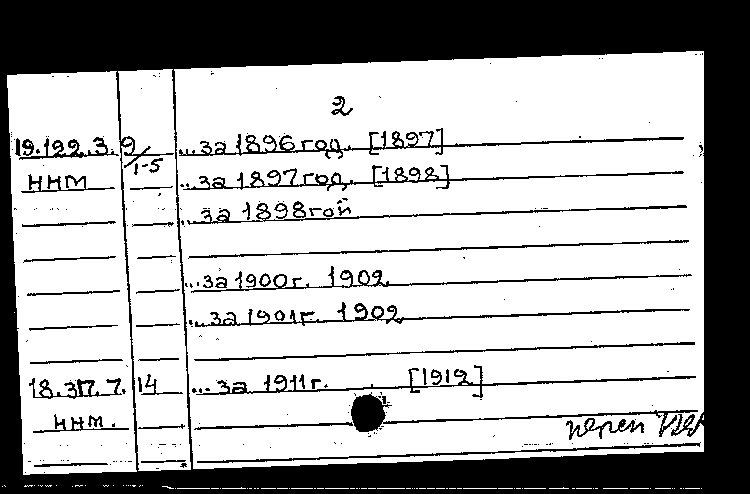 2
19.122.3. 9/1-5 ...за 1896 год. [1897]
ННМ ...за 1897 год. [1898]
...за 1898 гой
...за 1900г. 1902
...за 1901г. 1902
18.317.7. 14 ...за 1911г. [1912]
ННМ.